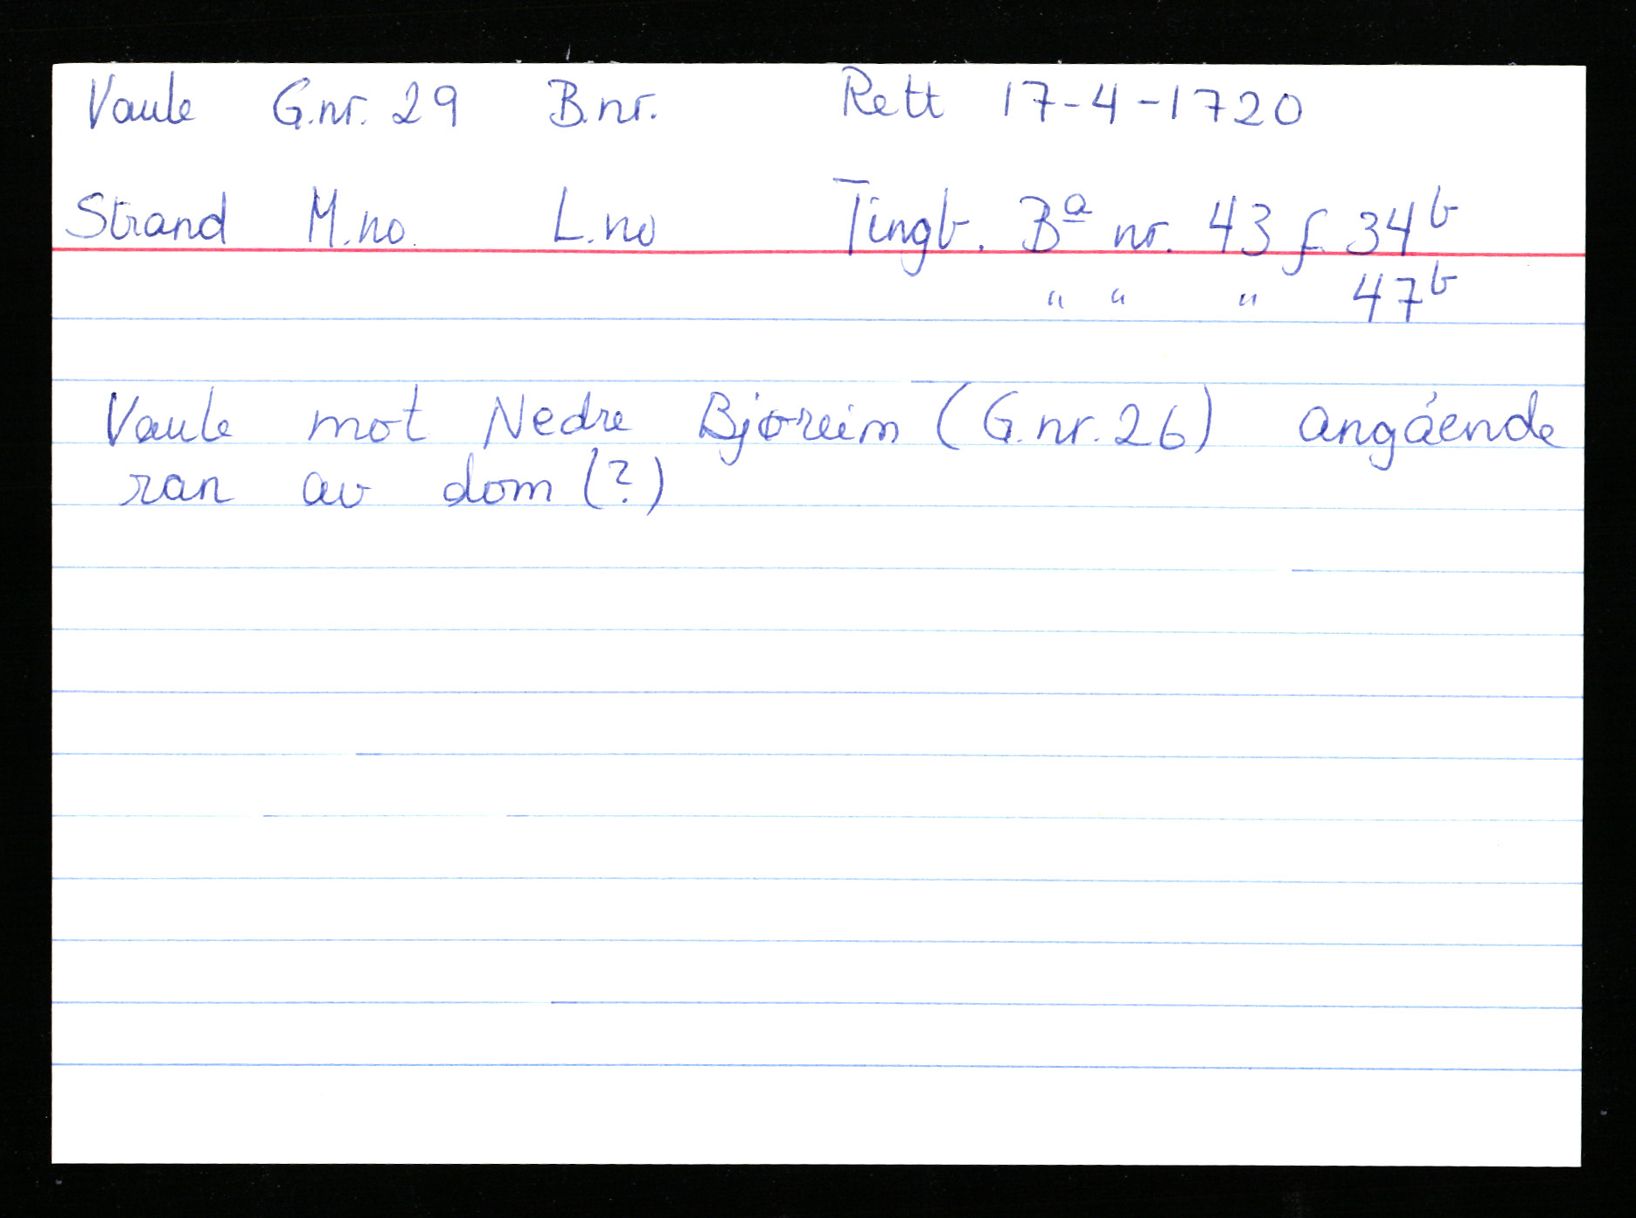 Vaule G.nr. 29 B.nr. Rett 17-4-1720
Strand M.no. L.no Tingb. Bª nr. 43 f. 34b
" " " 47b
Vaule mot Nedre Bjøreim (G.nr. 26) angående
ran av dom (?)